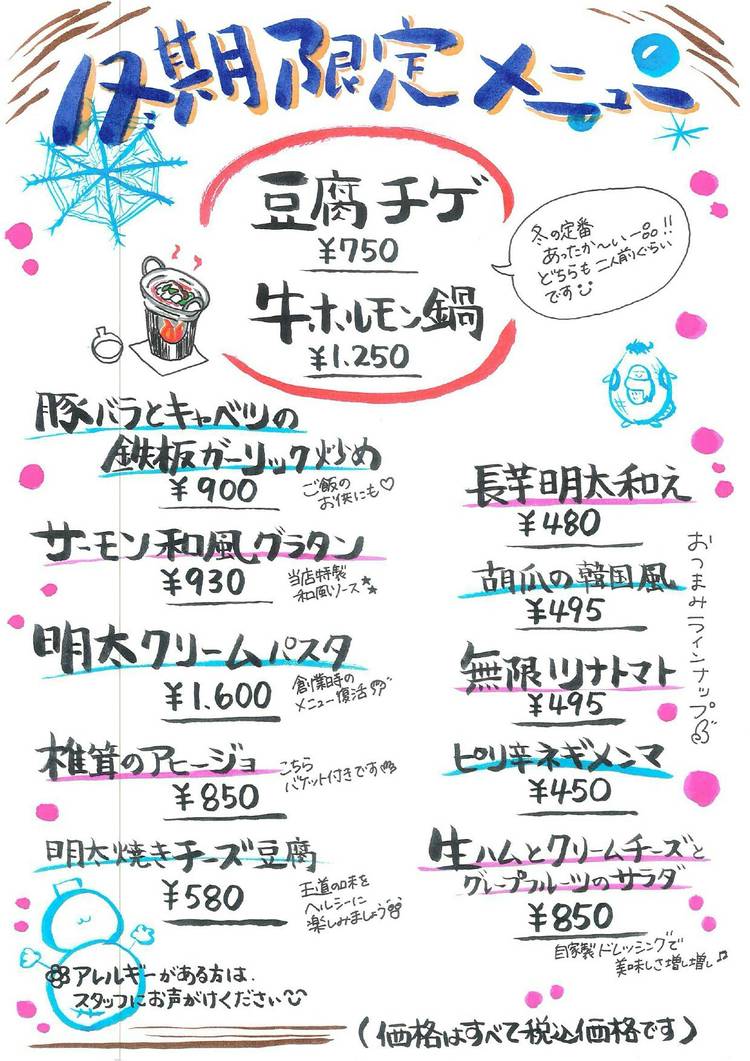 冬期限定メニュー
豆腐チゲ
¥750
牛ホルモン鍋
¥1.250
冬の定番
あったか〜いー。。!!
どちらも二人前ぐらい
です
豚バラとキャベツの
鉄板ガーリック炒め
¥900
ご飯の
お供にも♡
サーモン和風グラタン
¥930
当店特製
和風ソース★★
明太クリームパスタ
¥1.600
創業時の
メニュー復活
椎茸のアヒージョ
¥850
こちら
バゲット付きです
明太焼きチーズ豆腐
¥580
王道の味を
ヘルシーに
楽しみましょう
おつまみラインナップ
長芋明太和え
¥480
胡瓜の韓国風
¥495
無限ツナトマト
¥495
ピリ辛ネギメンマ
¥450
生ハムとクリームチーズと
グレープフルーツのサラダ
¥850
自家製ドレッシングで
美味しさ増し増し♫
アレルギーがある方は、
スタッフにお声がけください
(価格はすべて税込価格です)